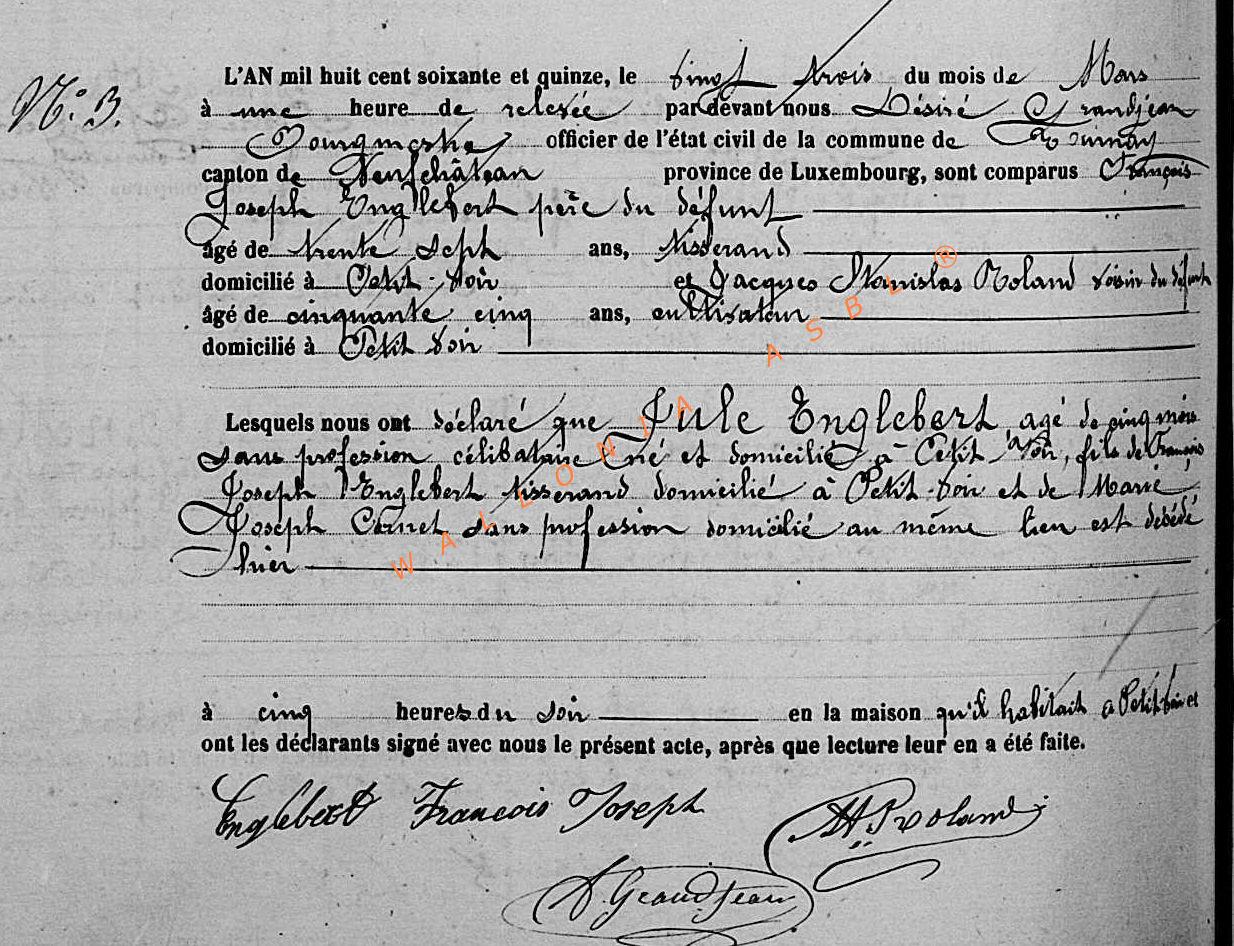 N° 3.
L'AN mil huit cent soixante et quinze, le vingt trois du mois de Mars
à une heure de relevée pardevant nous Désiré Grandjean
Bourgmestre officier de l'état civil de la commune de Tournay
canton de Neufchâteau province de Luxembourg, sont comparus François
Joseph Englebert père du défunt
âgé de trente sept ans, tisserand
domicilié à Petit-Voir et Jacques Stanislas Roland voisin du défunt
âgé de cinquante cinq ans, cultivateur
domicilié à Petit Voir
Lesquels nous ont déclaré que Jule Englebert agé de cinq mois
sans profession célibataire né et domicilié à Petit-Voir, fils de François
Joseph Englebert tisserand domicilié à Petit-Voir et de Marie
Joseph sans profession domicilié au même lieu est décédé
hier
à cinq heures du soir en la maison qu'il habitait a Petit Voir et
ont les déclarants signé avec nous le présent acte, après que lecture leur en a été faite.
Englebert Francois Joseph
Roland
D. Grandjean
WALLONIA ASBL ®